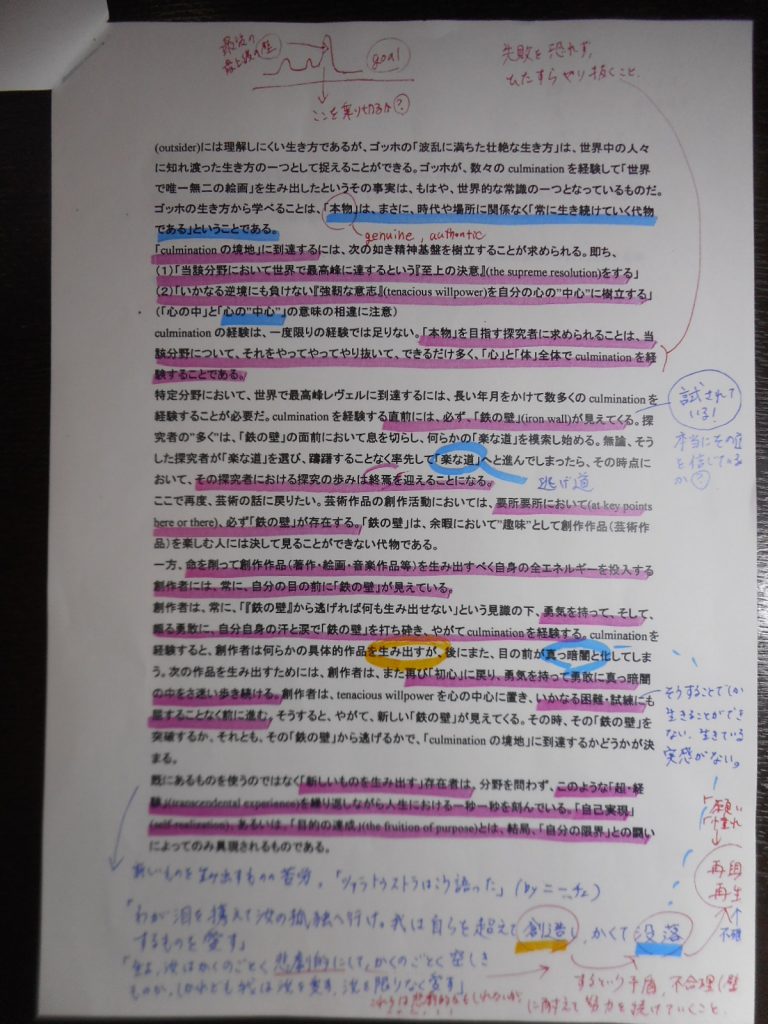 最後の
最上級の壁
goal
ここを乗り切るか?
失敗を恐れず、
ひたすらやり抜くこと。
(outsider)には理解しにくい生き方であるが、ゴッホの「波乱に満ちた壮絶な生き方」は、世界中の人々
に知れ渡った生き方の一つとして捉えることができる。ゴッホが、数々の culmination を経験して「世界
で唯一無二の絵画」を生み出したというその事実は、もはや、世界的な常識の一つとなっているものだ。
ゴッホの生き方から学べることは、「本物」は、まさに、時代や場所に関係なく「常に生き続けていく代物
である」ということである。
genuine, authentic
「culmination の境地」に到達するには、次の如き精神基盤を樹立することが求められる。即ち、
(1)「当該分野において世界で最高峰に達するという『至上の決意』(the supreme resolution)をする」
(2)「いかなる逆境にも負けない『強靭な意志』(tenacious willpower)を自分の心の"中心"に樹立する」
(「心の中」と「心の"中心"」の意味の相違に注意)
culmination の経験は、一度限りの経験では足りない。「本物」を目指す探究者に求められることは、当
該分野について、それをやってやってやり抜いて、できるだけ多く、「心」と「体」全体で culmination を経
験することである。
特定分野において、世界で最高峰レヴェルに到達するには、長い年月をかけて数多くの culmination を
経験することが必要だ。culmination を経験する直前には、必ず、「鉄の壁」(iron wall)が見えてくる。探
究者の"多く"は、「鉄の壁」の面前において息を切らし、何らかの「楽な道」を模索し始める。無論、そう
した探究者が「楽な道」を選び、躊躇することなく率先して「楽な道」へと進んでしまったら、その時点に
おいて、その探究者における探究の歩みは終焉を迎えることになる。
逃げ道
試されて
いる!
本当にその道
を信じている
か?
ここで再度、芸術の話に戻りたい。芸術作品の創作活動においては、要所要所において(at key points
here or there)、必ず「鉄の壁」が存在する。「鉄の壁」は、余暇において"趣味"として創作作品(芸術作
品)を楽しむ人には決して見ることができない代物である。
一方、命を削って創作作品(著作・絵画・音楽作品等)を生み出すべく自身の全エネルギーを投入する
創作者には、常に、自分の目の前に「鉄の壁」が見えている。
創作者は、常に、「『鉄の壁』から逃げれば何も生み出せない」という見識の下、勇気を持って、そして、
頗る勇敢に、自分自身の汗と涙で「鉄の壁」を打ち砕き、やがて culmination を経験する。culmination を
経験すると、創作者は何らかの具体的作品を生み出すが、後にまた、目の前が真っ暗闇と化してしま
う。次の作品を生み出すためには、創作者は、また再び「初心」に戻り、勇気を持って勇敢に真っ暗闇
の中をさ迷い歩き続ける。創作者は、tenacious willpower を心の中心に置き、いかなる困難・試練にも
屈することなく前に進む。そうすると、やがて、新しい「鉄の壁」が見えてくる。その時、その「鉄の壁」を
突破するか、それとも、その「鉄の壁」から逃げるかで、「culmination の境地」に到達するかどうかが決
まる。
そうすることでしか
生きることができ
ない。生きている
実感がない。
既にあるものを使うのではなく「新しいものを生み出す」存在者は、分野を問わず、このような「超・経
験」(transcendental experience)を繰り返しながら人生における一秒一秒を刻んでいる。「自己実現」
(self-realization)、あるいは、「目的の達成」(the fruition of purpose)とは、結局、「自分の限界」との闘い
によってのみ具現されるものである。
願い
憧れ
再生
新しいものを生み出すものの苦労。「ツァラトゥストラはこう語った」(by ニーチェ)
「わが涙を携えて汝の孤独へ行け。我は自らを超えて創造し、かくて没落
するものを愛す」
するという矛盾、不合理(壁)
に耐えて努力を続けていくこと。